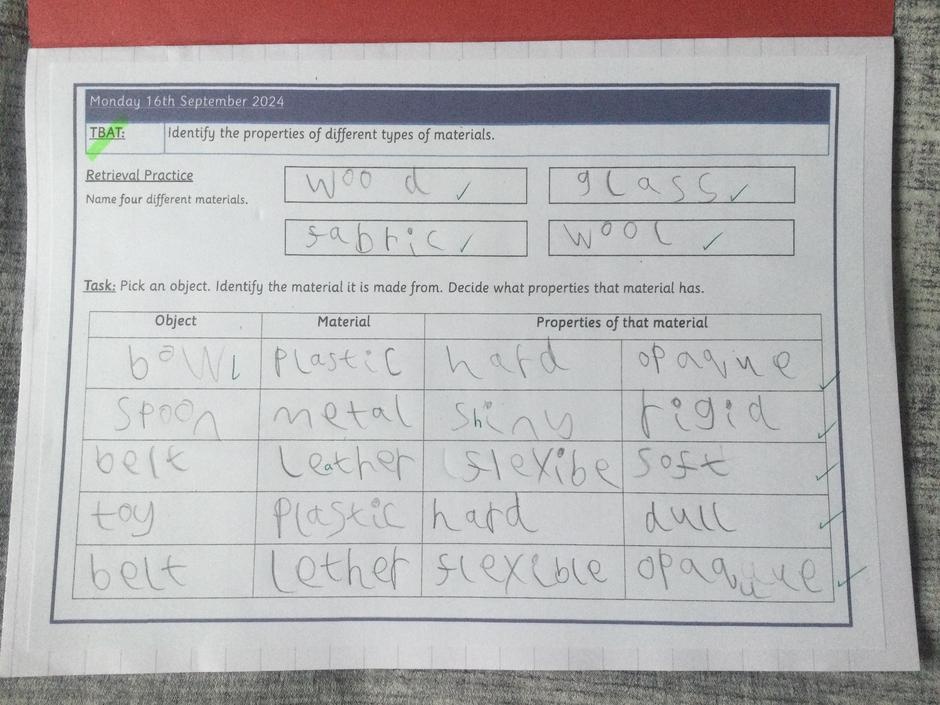 Monday 16th September 2024
TBAT: Identify the properties of different types of materials.
Retrieval Practice
Name four different materials.
wood glass
fabric wool
Task: Pick an object. Identify the material it is made from. Decide what properties that material has.
Object Material Properties of that material
bowl plastic hard opaque
spoon metal shiny rigid
belt leather flexibe soft
toy plastic hard dull
belt lether flexible opaquue